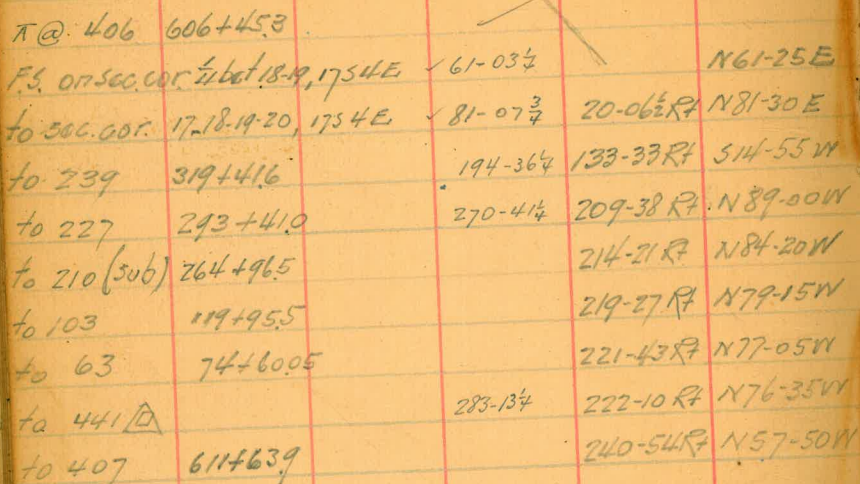 ⊼ @ 406 606+45.3
F.S. on sec. cor. ¼ bet 18-19, 17S4E ✓ 61-03¼ N61-25E
to sec. cor. 17-18-19-20, 17S4E ✓ 81-07¾ 20-06½ Rt N81-30E
to 239 319+41.6 194-36¼ 133-33 Rt S14-55W
to 227 293+41.0 270-41¼ 209-38 Rt N89-00W
to 210 (sub) 264+96.5 214-21 Rt N84-20W
to 103 119+95.5 219-27 Rt N79-15W
to 63 74+60.05 221-43 Rt N77-05W
to 441 283-13¼ 222-10 Rt N76-35W
to 407 611+63.9 240-54 Rt N57-50W